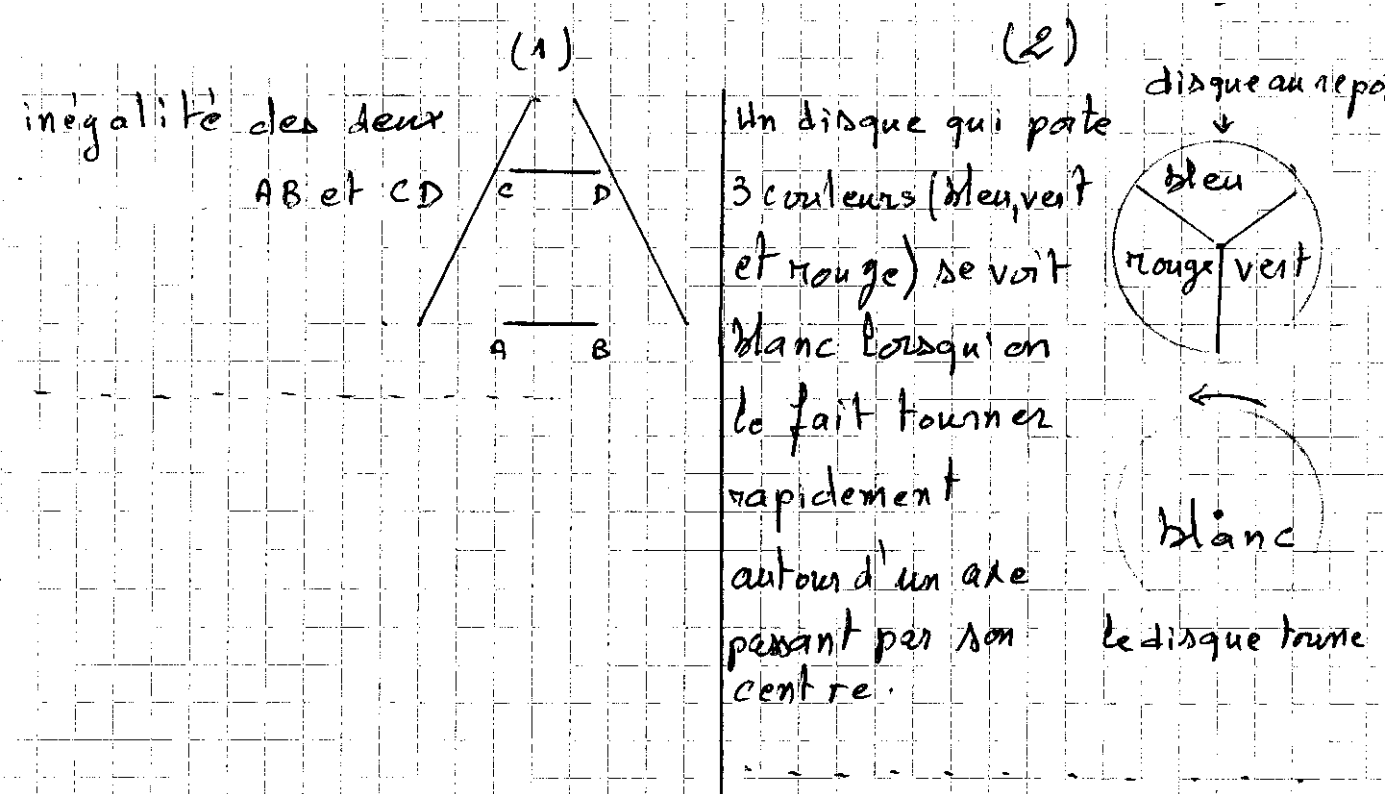 (1)
inégalité des deux
AB et CD
C D
A B
(2)
Un disque qui porte
3 couleurs (bleu, vert
et rouge) se voit
blanc lorsqu'on
le fait tourner
rapidement
autour d'un axe
passant par son
centre.
disque au repo
bleu
rouge vert
blanc
le disque tourne